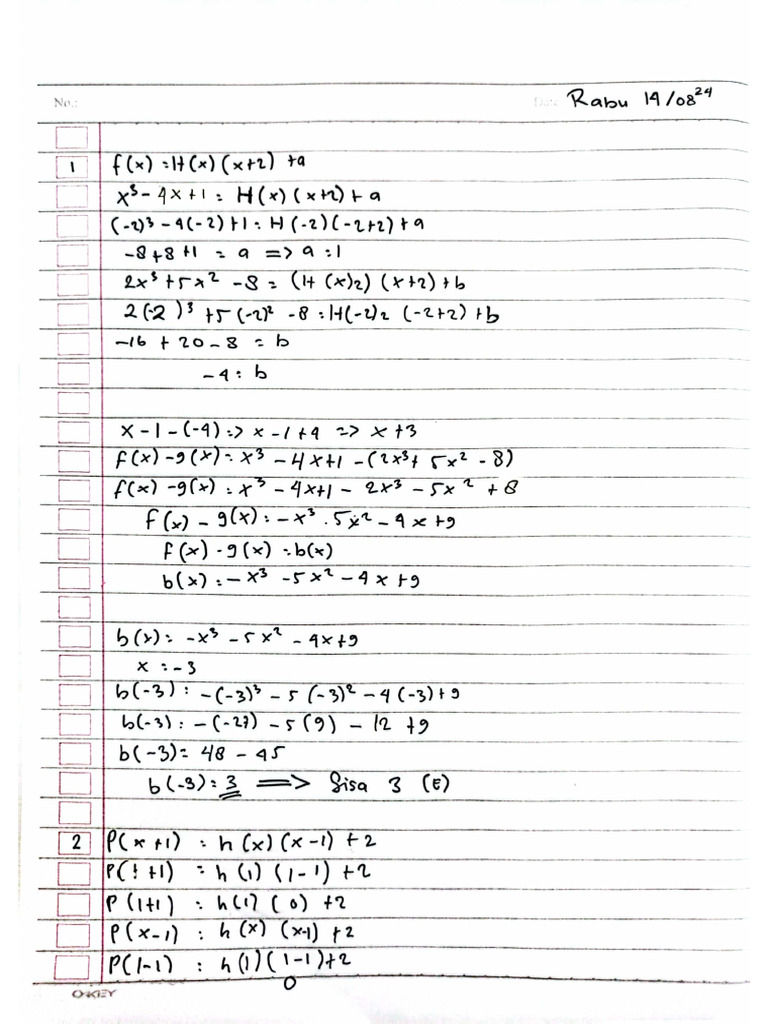 No.: Date Rabu 14/08 24
1 f(x) = H(x) (x+2) + a
x³ - 4x + 1 = H(x) (x+2) + a
(-2)³ - 4(-2) + 1 = H(-2) (-2+2) + a
-8 + 8 + 1 = a => a = 1
2x³ + 5x² - 8 = (H(x)2) (x+2) + b
2(-2)³ + 5(-2)² - 8 = H(-2)2 (-2+2) + b
-16 + 20 - 8 = b
-4 = b
x - 1 - (-4) => x - 1 + 4 => x + 3
f(x) - g(x) = x³ - 4x + 1 - (2x³ + 5x² - 8)
f(x) - g(x) = x³ - 4x + 1 - 2x³ - 5x² + 8
f(x) - g(x) = -x³ - 5x² - 4x + 9
f(x) - g(x) = b(x)
b(x) = -x³ - 5x² - 4x + 9
b(x) = -x³ - 5x² - 4x + 9
x = -3
b(-3) = -(-3)³ - 5(-3)² - 4(-3) + 9
b(-3) = -(-27) - 5(9) - 12 + 9
b(-3) = 48 - 45
b(-3) = 3 => Sisa 3 (E)
2 P(x+1) = h(x) (x-1) + 2
P(1+1) = h(1) (1-1) + 2
P(1+1) = h(1) (0) + 2
P(x-1) = h(x) (x-1) + 2
P(1-1) = h(1) (1-1) + 2
0
OKEY